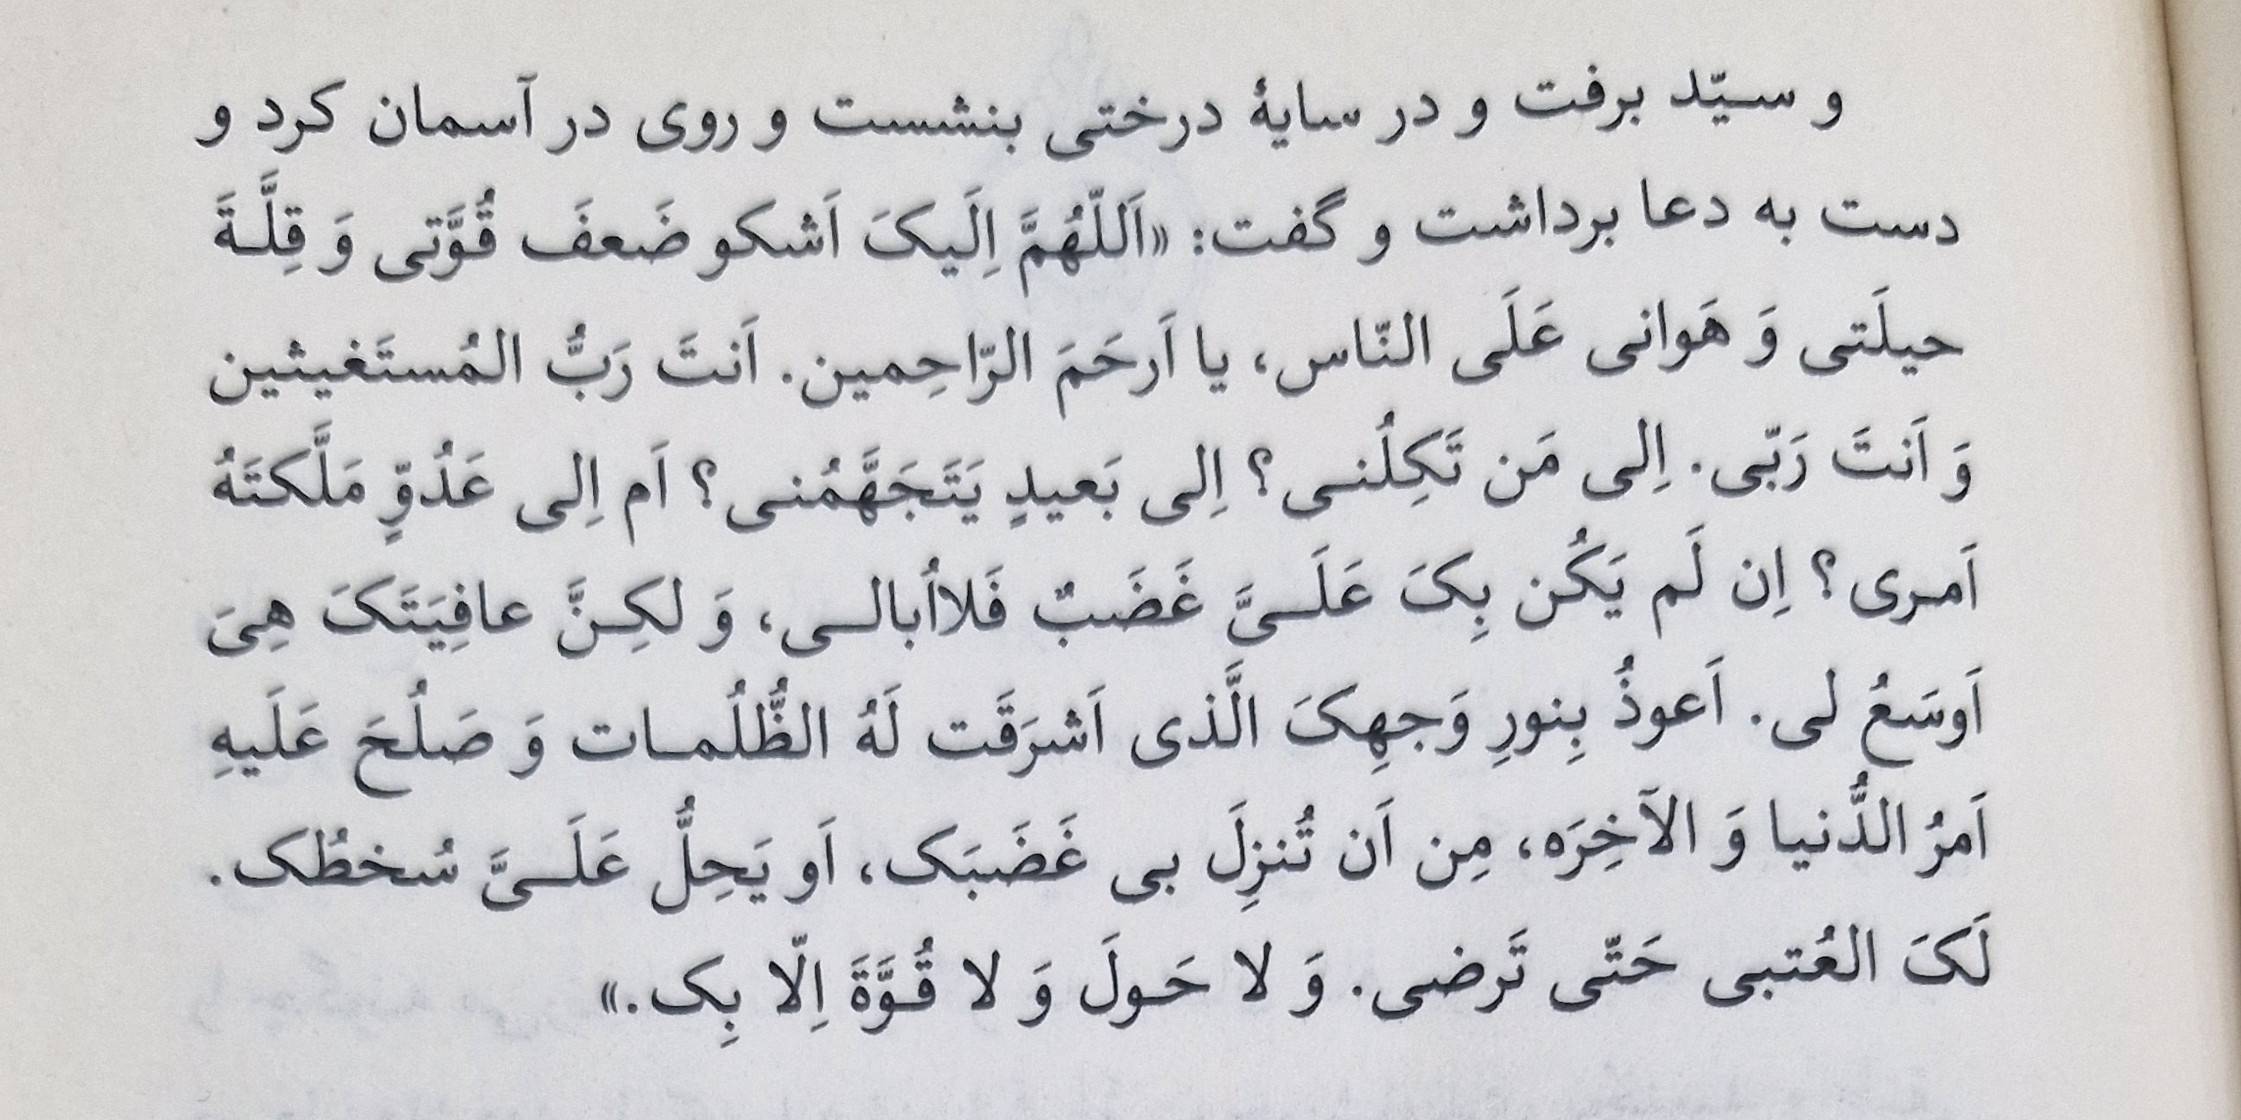 و سیّد برفت و در سایهٔ درختی بنشست و روی در آسمان کرد و
دست به دعا برداشت و گفت: «اَللّهُمَّ اِلَیکَ اَشکو ضَعفَ قُوَّتی وَ قِلَّةَ
حیلَتی وَ هَوانی عَلَی النّاس، یا اَرحَمَ الرّاحِمین. اَنتَ رَبُّ المُستَغیثین
وَ اَنتَ رَبّی. اِلی مَن تَکِلُنی؟ اِلی بَعیدٍ یَتَجَهَّمُنی؟ اَم اِلی عَدُوٍّ مَلَّکتَهُ
اَمری؟ اِن لَم یَکُن بِکَ عَلَیَّ غَضَبٌ فَلااُبالی، وَ لکِنَّ عافِیَتَکَ هِیَ
اَوسَعُ لی. اَعوذُ بِنورِ وَجهِکَ الَّذی اَشرَقَت لَهُ الظُّلُمات وَ صَلُحَ عَلَیهِ
اَمرُ الدُّنیا وَ الآخِرَه، مِن اَن تُنزِلَ بی غَضَبَک، اَو یَحِلُّ عَلَیَّ سُخطُک.
لَکَ العُتبی حَتّی تَرضی. وَ لا حَولَ وَ لا قُوَّةَ اِلّا بِک.»